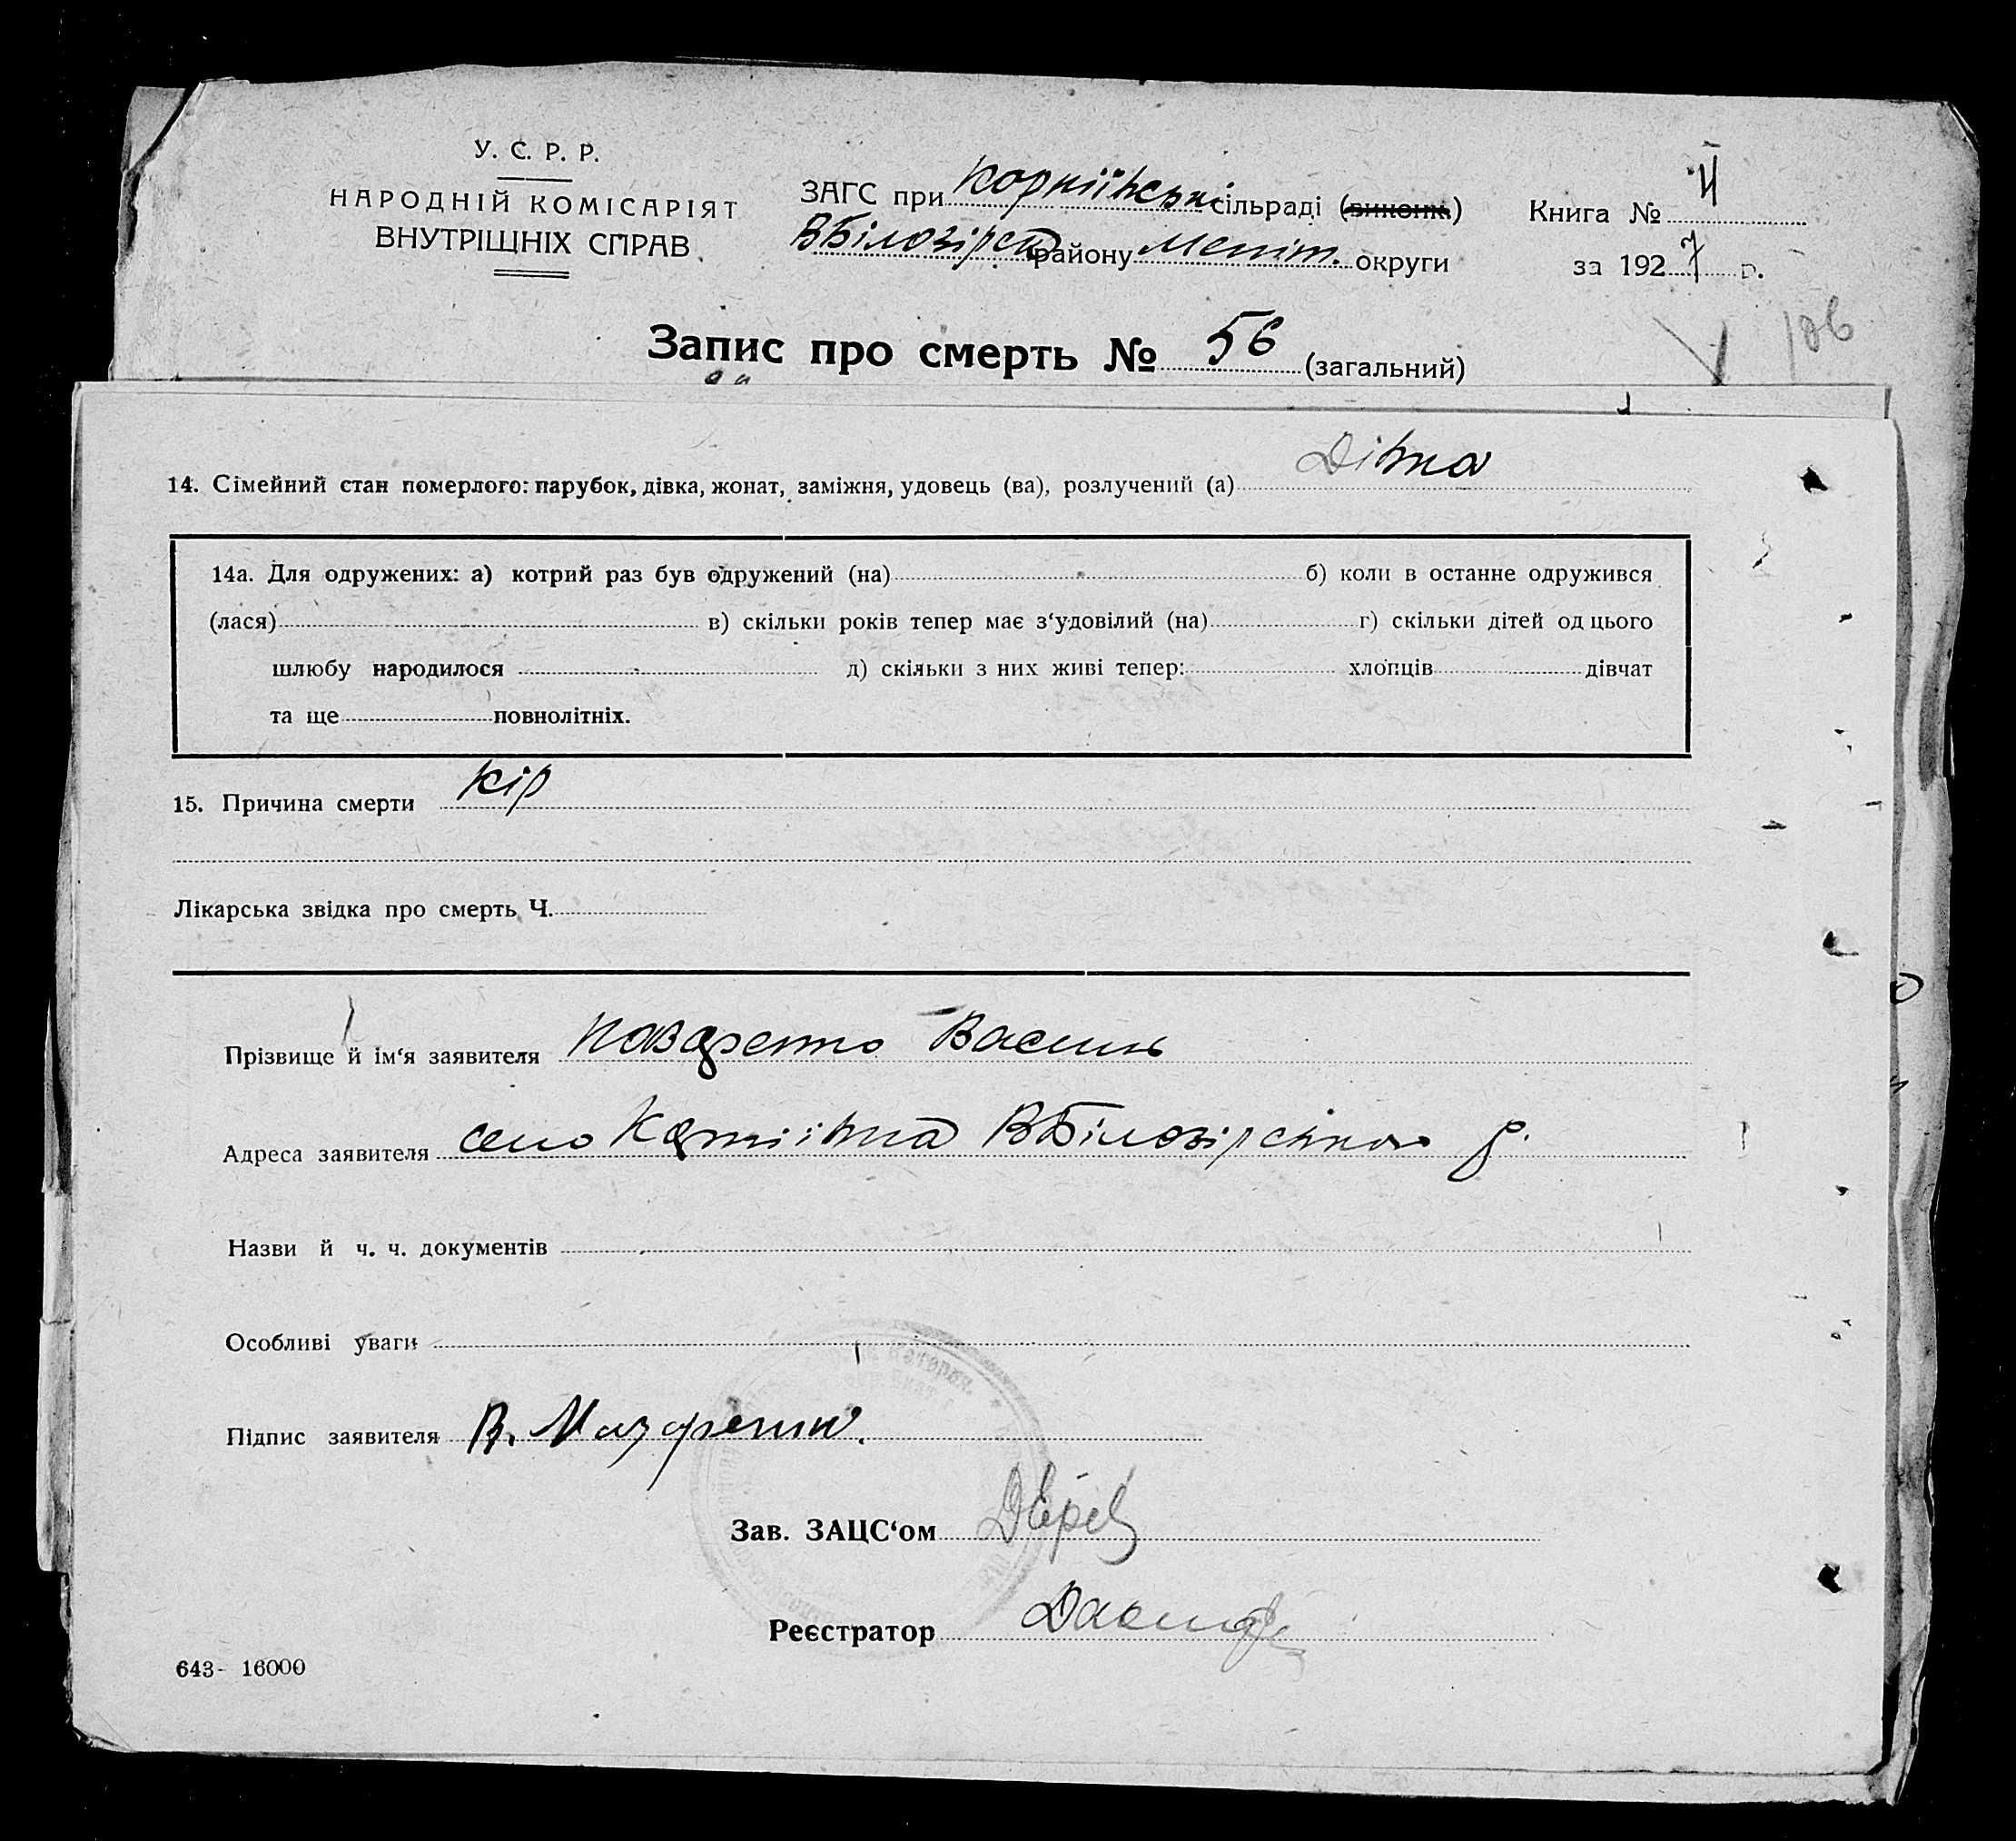 У. С. Р. Р.
НАРОДНІЙ КОМІСАРІЯТ
ВНУТРІШНІХ СПРАВ
ЗАГС при Корніївські сільраді (виконк.)
ВБілозірськ району Меліт. округи
Книга № II
за 1927 р.
106
Запис про смерть № 56 (загальний)
14. Сімейний стан померлого: парубок, дівка, жонат, заміжня, удовець (ва), розлучений (а) Дівка
14а. Для одружених: а) котрий раз був одружений (на) б) коли в останне одружився
(лася) в) скільки років тепер має з'удовілий (на) г) скільки дітей од цього
шлюбу народилося д) скільки з них живі тепер: хлопців дівчат
та ще повнолітніх.
15. Причина смерти кір
Лікарська звідка про смерть Ч.
Прізвище й ім'я заявителя Назаренко Василь
Адреса заявителя село Корніївка ВБілозірського р.
Назви й ч. ч. документів
Особливі уваги
Підпис заявителя В. Назаренко.
Зав. ЗАЦС'ом
Реєстратор
643- 16000